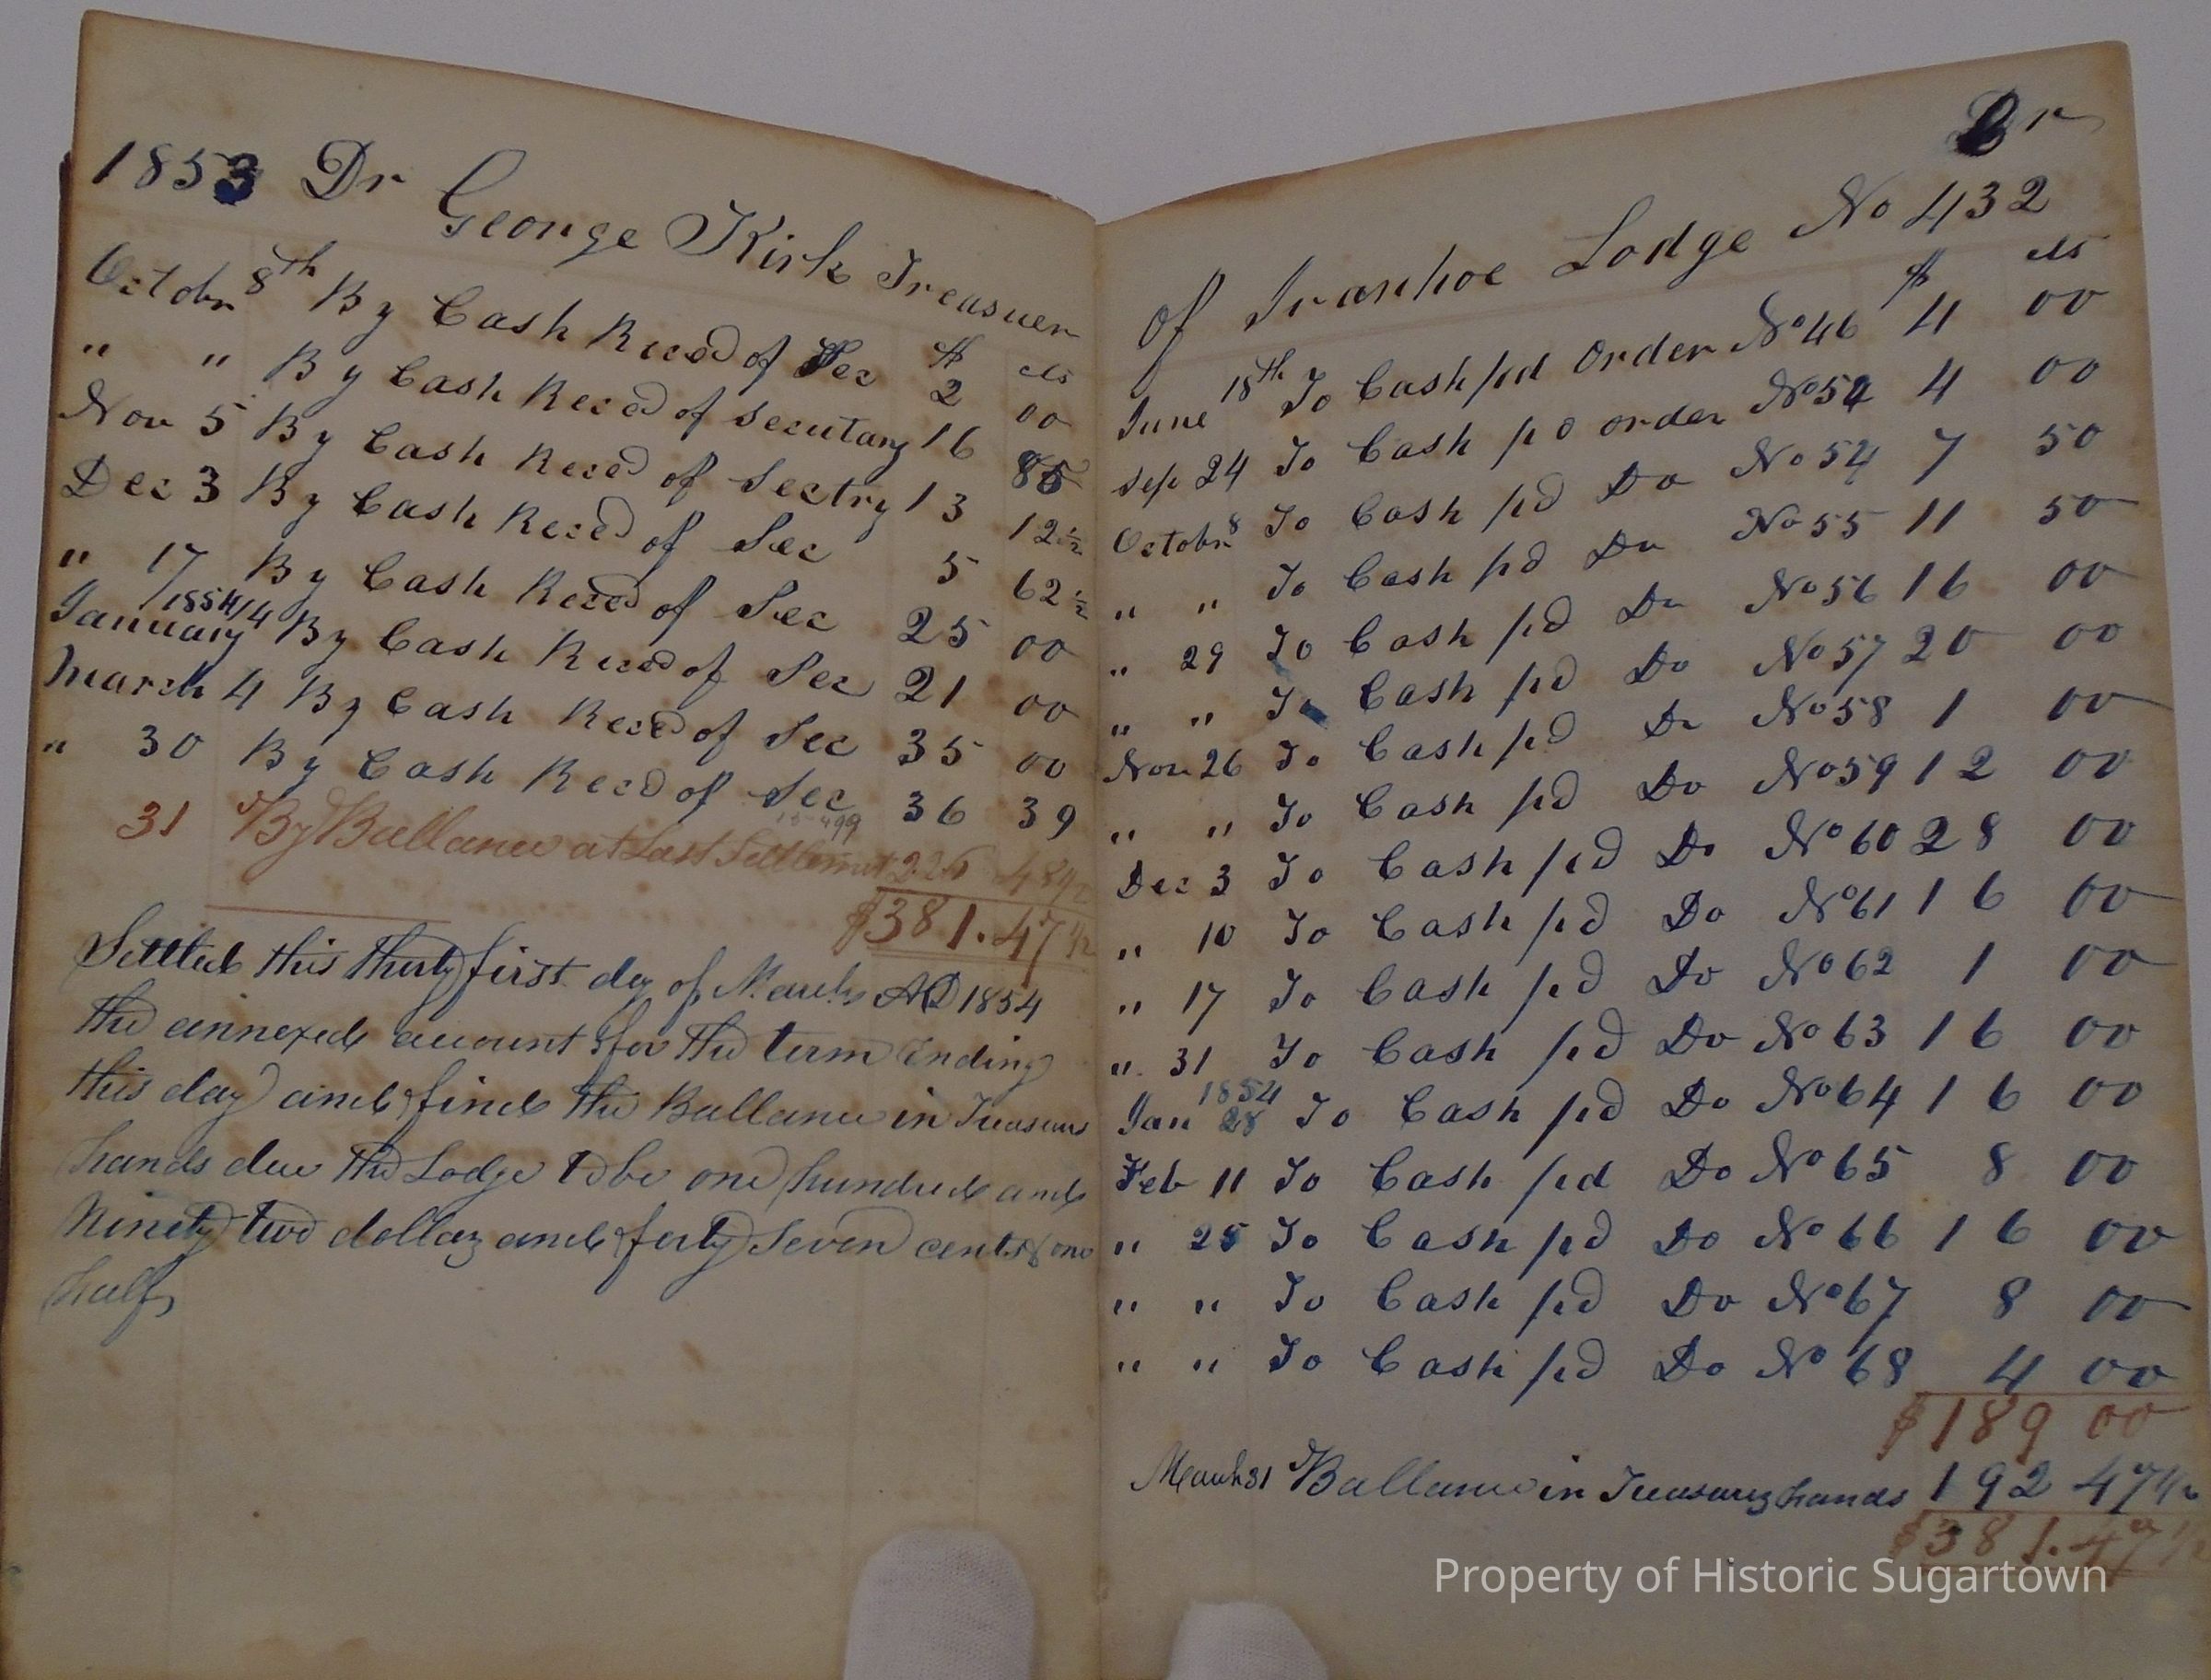 1853 Dr George Kirk Treasuer
$ cts
Octobr 8th By Cash Reced of Sec 2 00
" " By Cash Reced of Secutary 16 85
Nov 5 By Cash Reced of Sectry 13 12½
Dec 3 By Cash Reced of Sec 5 62½
" 17 By Cash Reced of Sec 25 00
1854
January 14 By Cash Reced of Sec 21 00
March 4 By Cash Reced of Sec 35 00
" 30 By Cash Recd of Sec 36 39
31 By Ballance at Last Settlement 226 48½
$381.47½
Settled this thirty first day of March AD 1854
the annexed account for the term Ending
this day and find the Ballance in Treasurs
hands due the Lodge to be one hundred and
Ninety two dollars and forty Seven cents & one
half
Cr
Of Ivanhoe Lodge No 432
$ cts
June 18th To Cash pd Order No 46 4 00
Sep 24 To Cash pd order No 52 4 00
Octobr 8 To Cash pd Do No 54 7 50
" " To Cash pd Do No 55 11 50
" 29 To Cash pd Do No 56 16 00
" " To Cash pd Do No 57 20 00
Nov 26 To Cash pd Do No 58 1 00
" " To Cash pd Do No 59 12 00
Dec 3 To Cash pd Do No 60 28 00
" 10 To Cash pd Do No 61 16 00
" 17 To Cash pd Do No 62 1 00
" 31 To Cash pd Do No 63 16 00
1854
Jan 28 To Cash pd Do No 64 16 00
Feb 11 To Cash pd Do No 65 8 00
" 25 To Cash pd Do No 66 16 00
" " To Cash pd Do No 67 8 00
" " To Cash pd Do No 68 4 00
$189 00
March 31 Ballance in Treasurers hands 192 47½
$381.47½
Property of Historic Sugartown